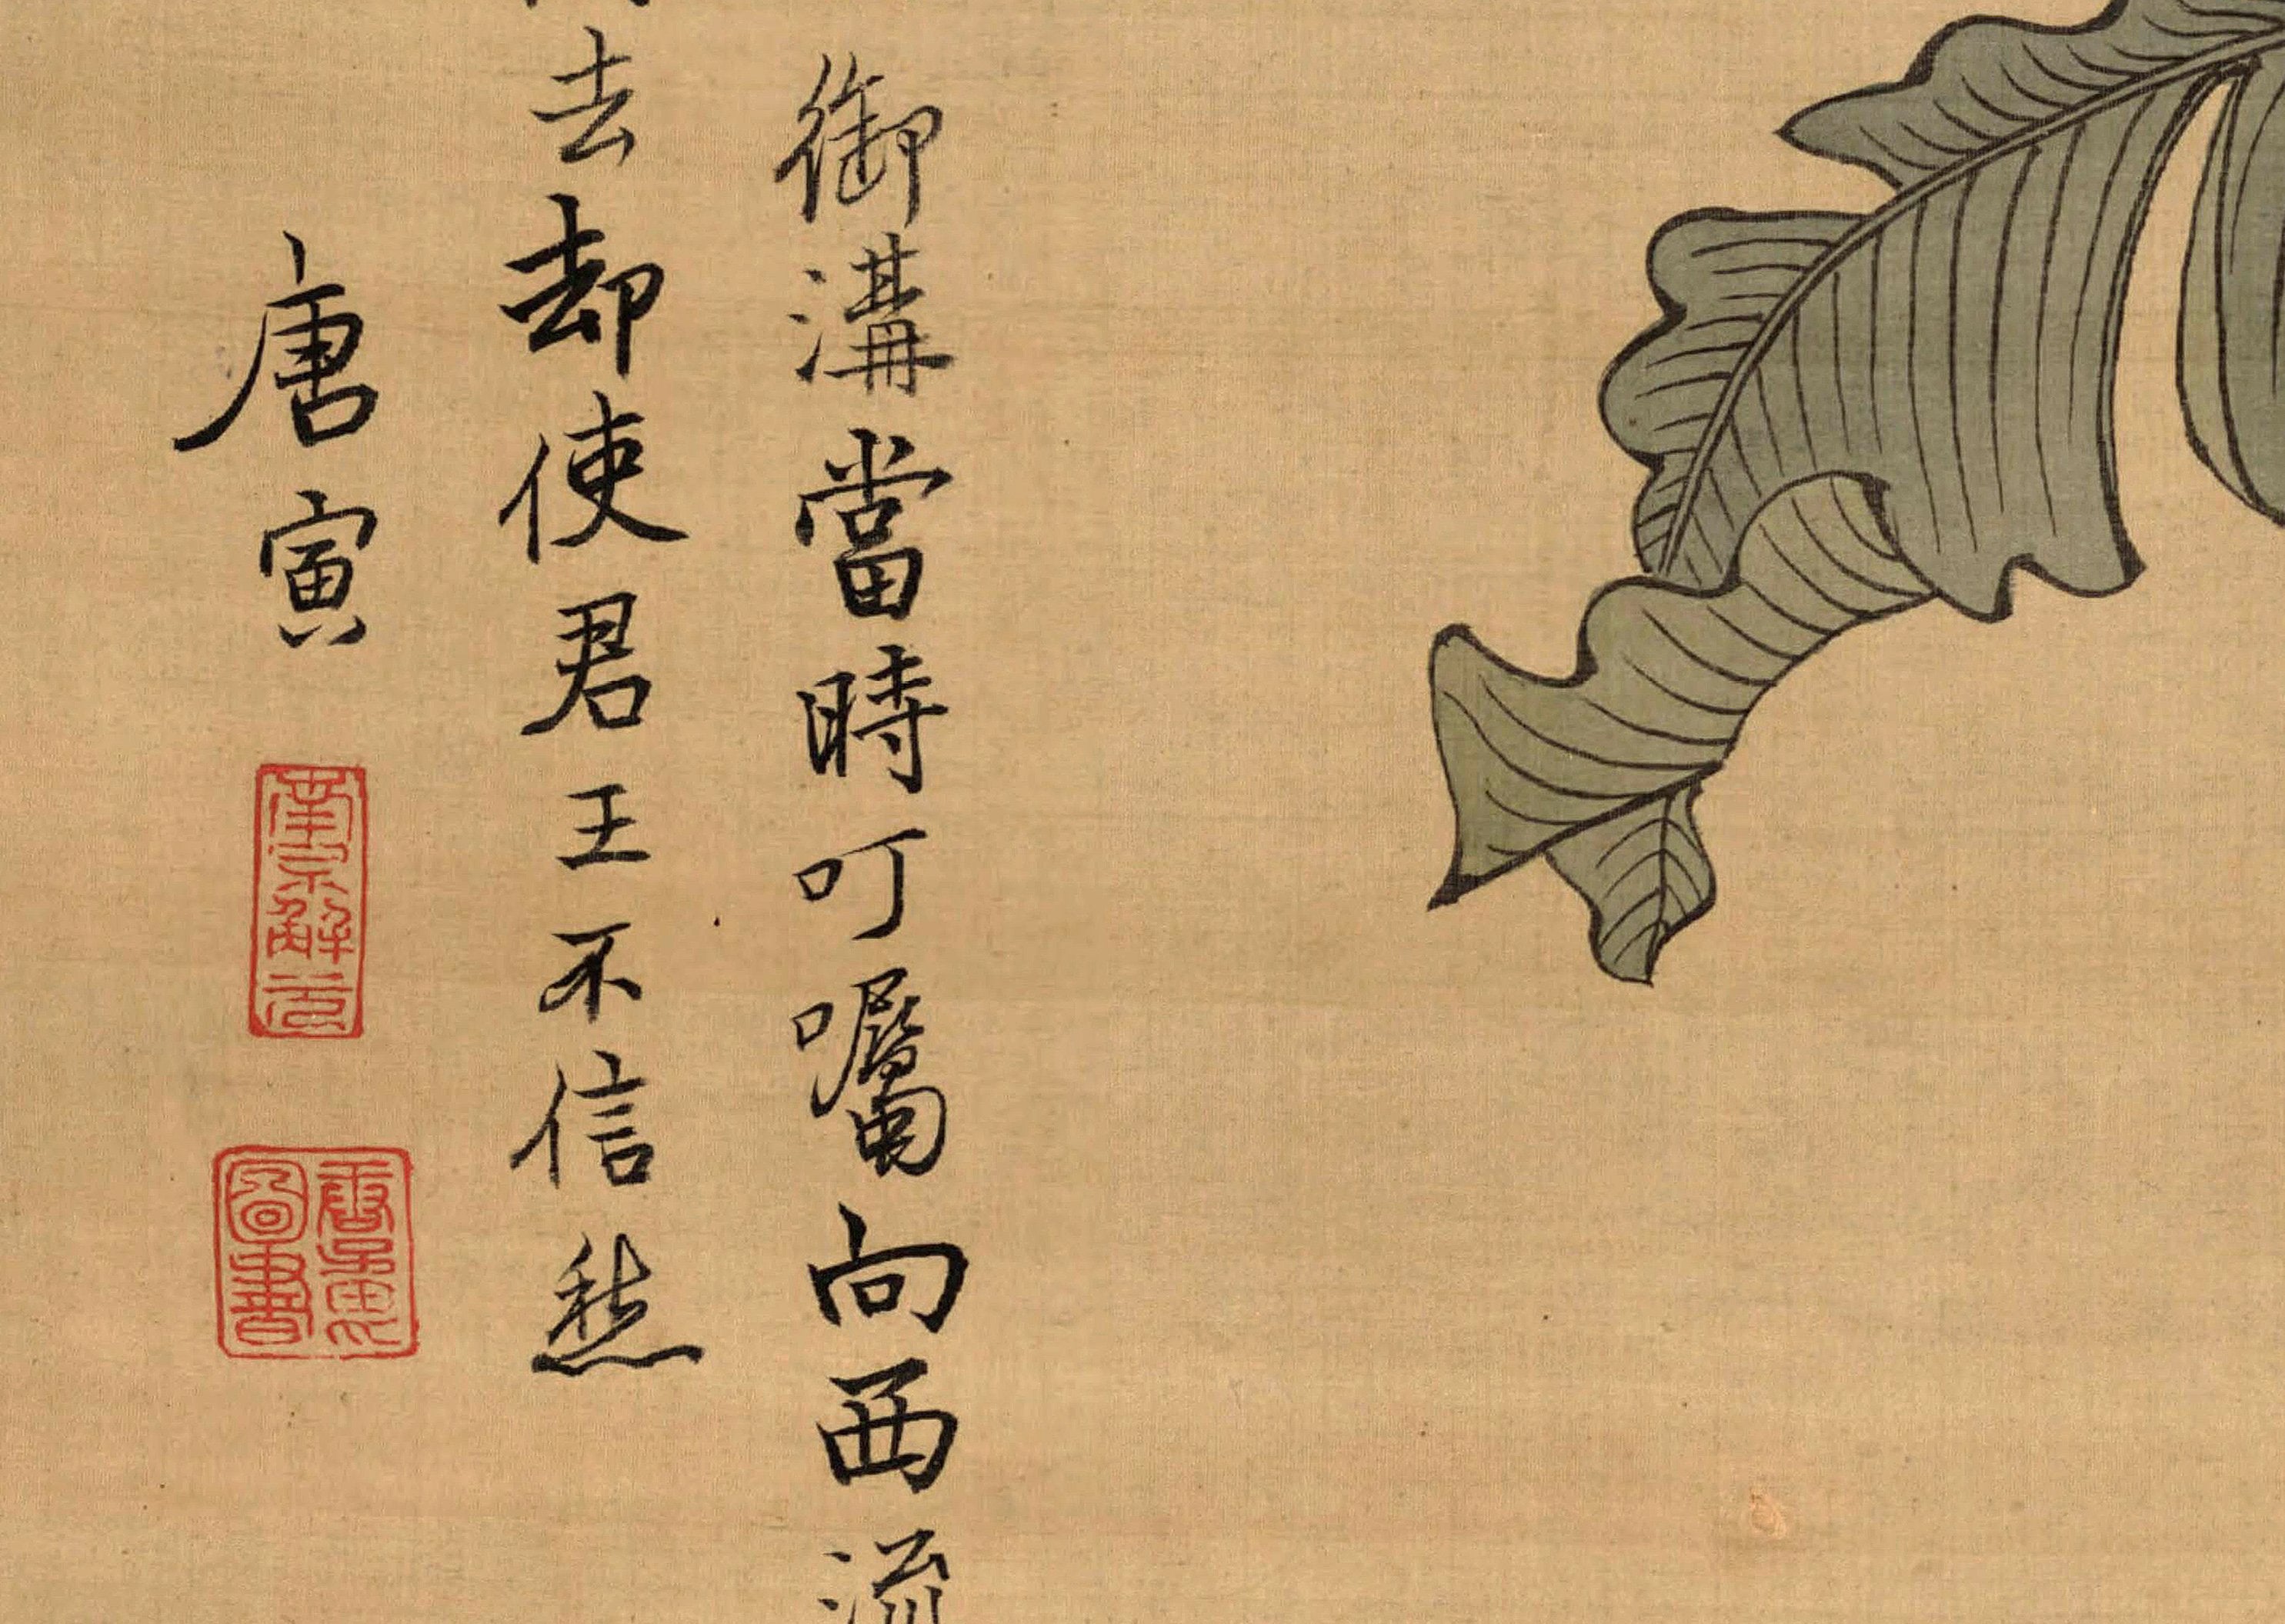 御溝當時叮囑向西流
去却使君王不信愁
唐寅
南京解元
唐寅
圖書